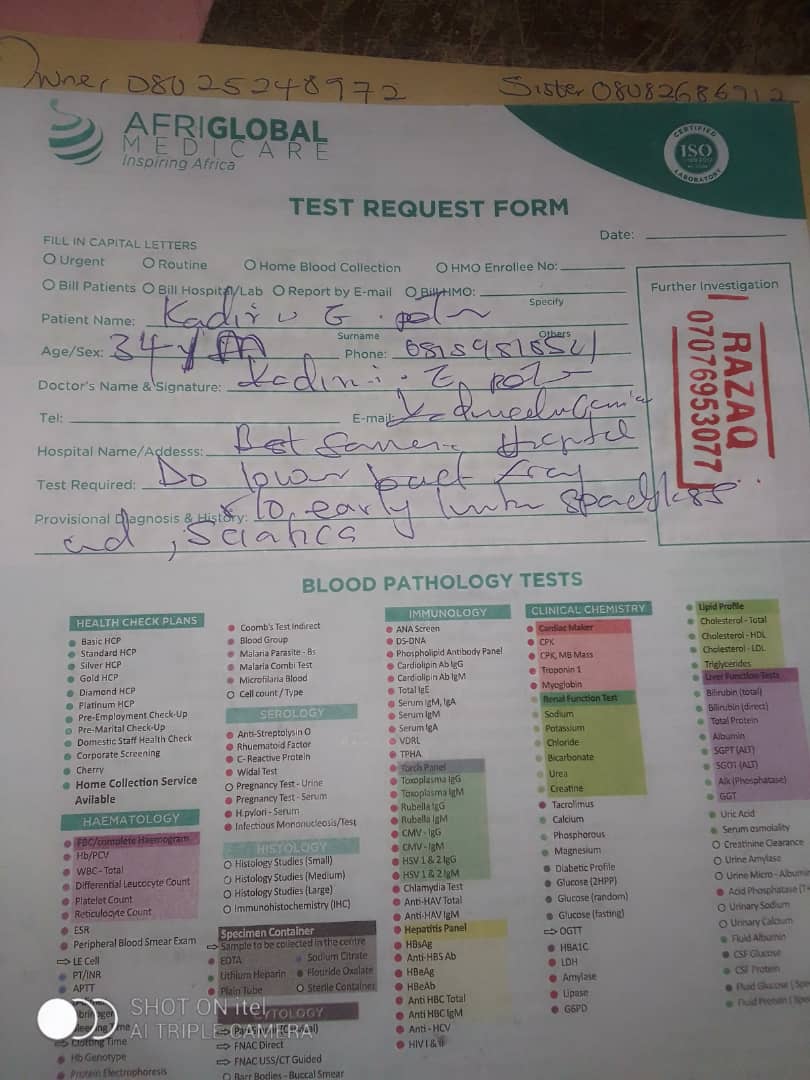 Owner 08025248972 Sister 08082686912
AFRIGLOBAL
MEDICARE
Inspiring Africa
CERTIFIED
ISO
LABORATORY
TEST REQUEST FORM
Date:
FILL IN CAPITAL LETTERS
Urgent Routine Home Blood Collection HMO Enrollee No:
Bill Patients Bill Hospital/Lab Report by E-mail Bill HMO:
Specify
Further Investigation
Patient Name: Kadiri E.
Surname Others
Age/Sex: 34y M Phone:
Doctor's Name & Signature: Kadiri. E
Tel: E-mail:
Hospital Name/Addesss: Best Hospital
Test Required: Do lower back xray
Provisional Diagnosis & History: To early
and, Sciatica
RAZAQ
07076953077
BLOOD PATHOLOGY TESTS
HEALTH CHECK PLANS
Basic HCP
Standard HCP
Silver HCP
Gold HCP
Diamond HCP
Platinum HCP
Pre-Employment Check-Up
Pre-Marital Check-Up
Domestic Staff Health Check
Corporate Screening
Cherry
Home Collection Service
Avilable
HAEMATOLOGY
FBC/complete Haemogram
Hb/PCV
WBC - Total
Differential Leucocyte Count
Platelet Count
Reticulocyte Count
ESR
Peripheral Blood Smear Exam
LE Cell
PT/INR
APTT
Clotting Time
Hb Genotype
Protein Electrophoresis
Coomb's Test Indirect
Blood Group
Malaria Parasite - Bs
Malaria Combi Test
Microfilaria Blood
Cell count / Type
SEROLOGY
Anti-Streptolysin O
Rhuematoid Factor
C- Reactive Protein
Widal Test
Pregnancy Test - Urine
Pregnancy Test - Serum
H.pylori - Serum
Infectious Mononucleosis/Test
HISTOLOGY
Histology Studies (Small)
Histology Studies (Medium)
Histology Studies (Large)
Immunohistochemistry (IHC)
Specimen Container
Sample to be collected in the centre
EDTA Sodium Citrate
Lithium Heparin Flouride Oxalate
Plain Tube Sterile Container
CYTOLOGY
FNAC Direct
FNAC USS/CT Guided
Barr Bodies - Buccal Smear
IMMUNOLOGY
ANA Screen
DS-DNA
Phospholipid Antibody Panel
Cardiolipin Ab IgG
Cardiolipin Ab IgM
Total IgE
Serum IgM, IgA
Serum IgM
Serum IgA
VDRL
TPHA
Torch Panel
Toxoplasma IgG
Toxoplasma IgM
Rubella IgG
Rubella IgM
CMV - IgG
CMV - IgM
HSV 1 & 2 IgG
HSV 1 & 2 IgM
Chlamydia Test
Anti-HAV Total
Anti-HAV IgM
Hepatitis Panel
HBsAg
Anti-HBS Ab
HBeAg
HBeAb
Anti HBC Total
Anti HBC IgM
Anti - HCV
HIV I & II
CLINICAL CHEMISTRY
Cardiac Maker
CPK
CPK, MB Mass
Troponin 1
Myoglobin
Renal Function Test
Sodium
Potassium
Chloride
Bicarbonate
Urea
Creatine
Tacrolimus
Calcium
Phosphorous
Magnesium
Diabetic Profile
Glucose (2HPP)
Glucose (random)
Glucose (fasting)
OGTT
HBA1C
LDH
Amylase
Lipase
G6PD
Lipid Profile
Cholesterol - Total
Cholesterol - HDL
Cholesterol - LDL
Triglycerides
Liver Function Tests
Bilirubin (total)
Bilirubin (direct)
Total Protein
Albumin
SGPT (ALT)
SGOT (ALT)
Alk (Phosphatase)
GGT
Uric Acid
Serum osmolality
Creatinine Clearance
Urine Amylase
Urine Micro - Albumin
Acid Phosphatase
Urinary Sodium
Urinary Calcium
Fluid Albumin
CSF Glucose
CSF Protein
Fluid Glucose
Fluid Protein
SHOT ON itel
AI TRIPLE CAMERA